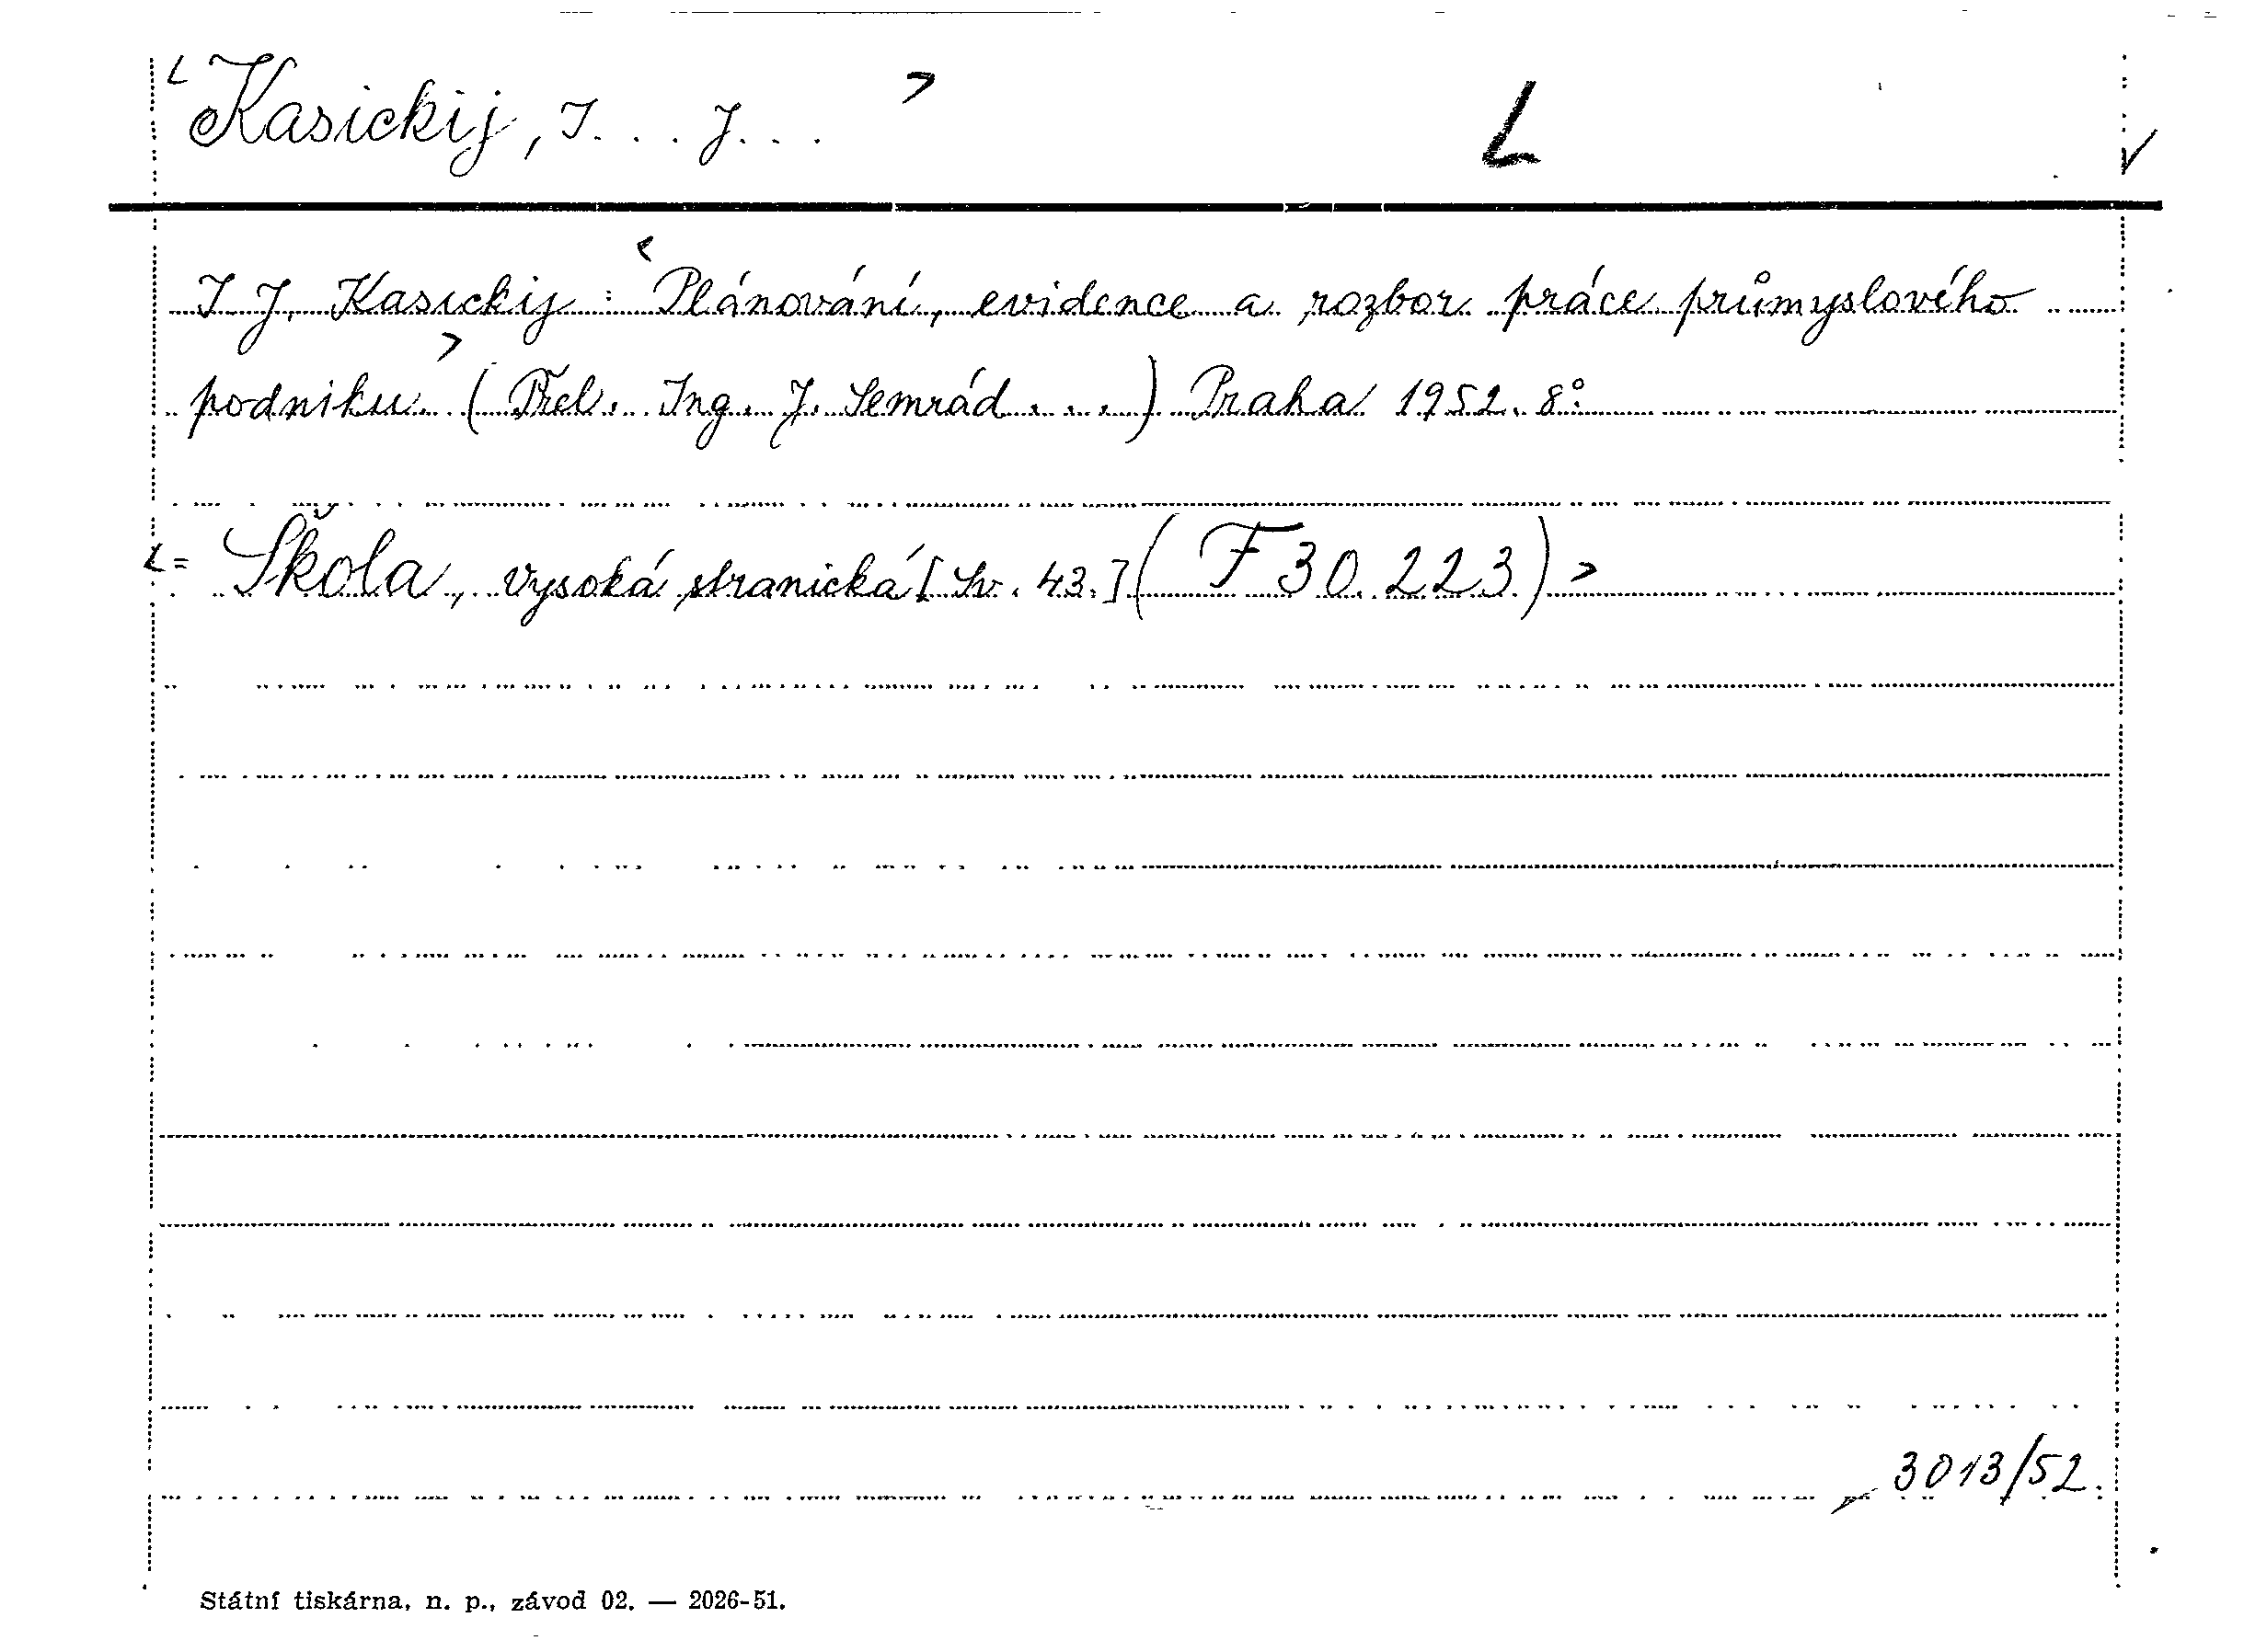 Kasickij, I... J... L
I. J. Kasickij: Plánování, evidence a rozbor práce průmyslového
podniku. (Přel. Ing. J. Semrád ...) Praha 1952. 8°.
= Škola, vysoká stranická [Sv. 43.] (F 30.223)
3013/52.
Státní tiskárna, n. p., závod 02. — 2026-51.